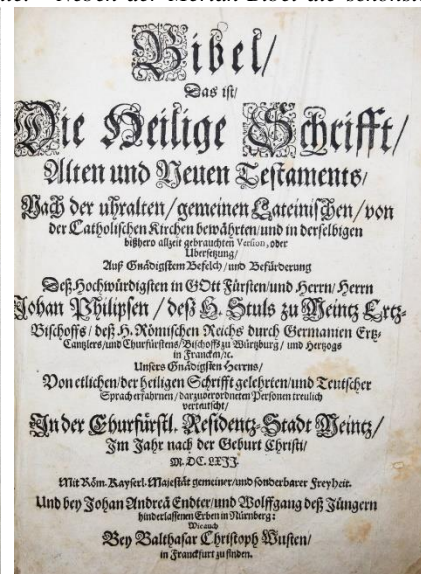 Neben der Merian-Bibel die schönste
Bibel/
Das ist/
Die Heilige Schrifft/
Alten und Neuen Testaments/
Nach der uhralten/gemeinen Lateinischen/von
der Catholischen Kirchen bewährten/und in derselbigen
bißhero allzeit gebrauchten Version, oder
Ubersetzung/
Auß Gnädigstem Befelch/und Befürderung
Deß Hochwürdigsten in GOtt Fürsten/und Herrn/Herrn
Johan Philipsen/deß H. Stuls zu Meintz Ertz-
Bischoffs/deß H. Römischen Reichs durch Germanien Ertz-
Cantzlers/und Churfürstens/Bischoffs zu Würtzburg/und Hertzogs
in Francken/ec.
Unsers Gnädigsten Herrns/
Von etlichen/der heiligen Schrifft gelehrten/und Teutscher
Sprach erfahrnen/darzu verordneten Personen treulich
verteutscht/
In der Churfürstl. Residentz-Stadt Meintz/
Im Jahr nach der Geburt Christi/
M. DC. LXII.
Mit Röm. Kayserl. Majestät gemeiner/und sonderbarer Freyheit.
Und bey Johan Andreä Endter/und Wolffgang deß Jüngern
hinderlassenen Erben in Nürnberg:
Wie auch
Bey Balthasar Christoph Wusten/
in Franckfurt zu finden.